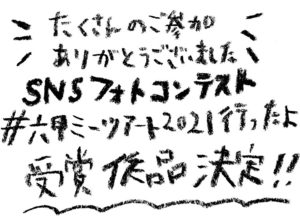 たくさんのご参加
ありがとうございました
SNSフォトコンテスト
#六甲ミーツアート2021行ったよ
受賞作品決定!!